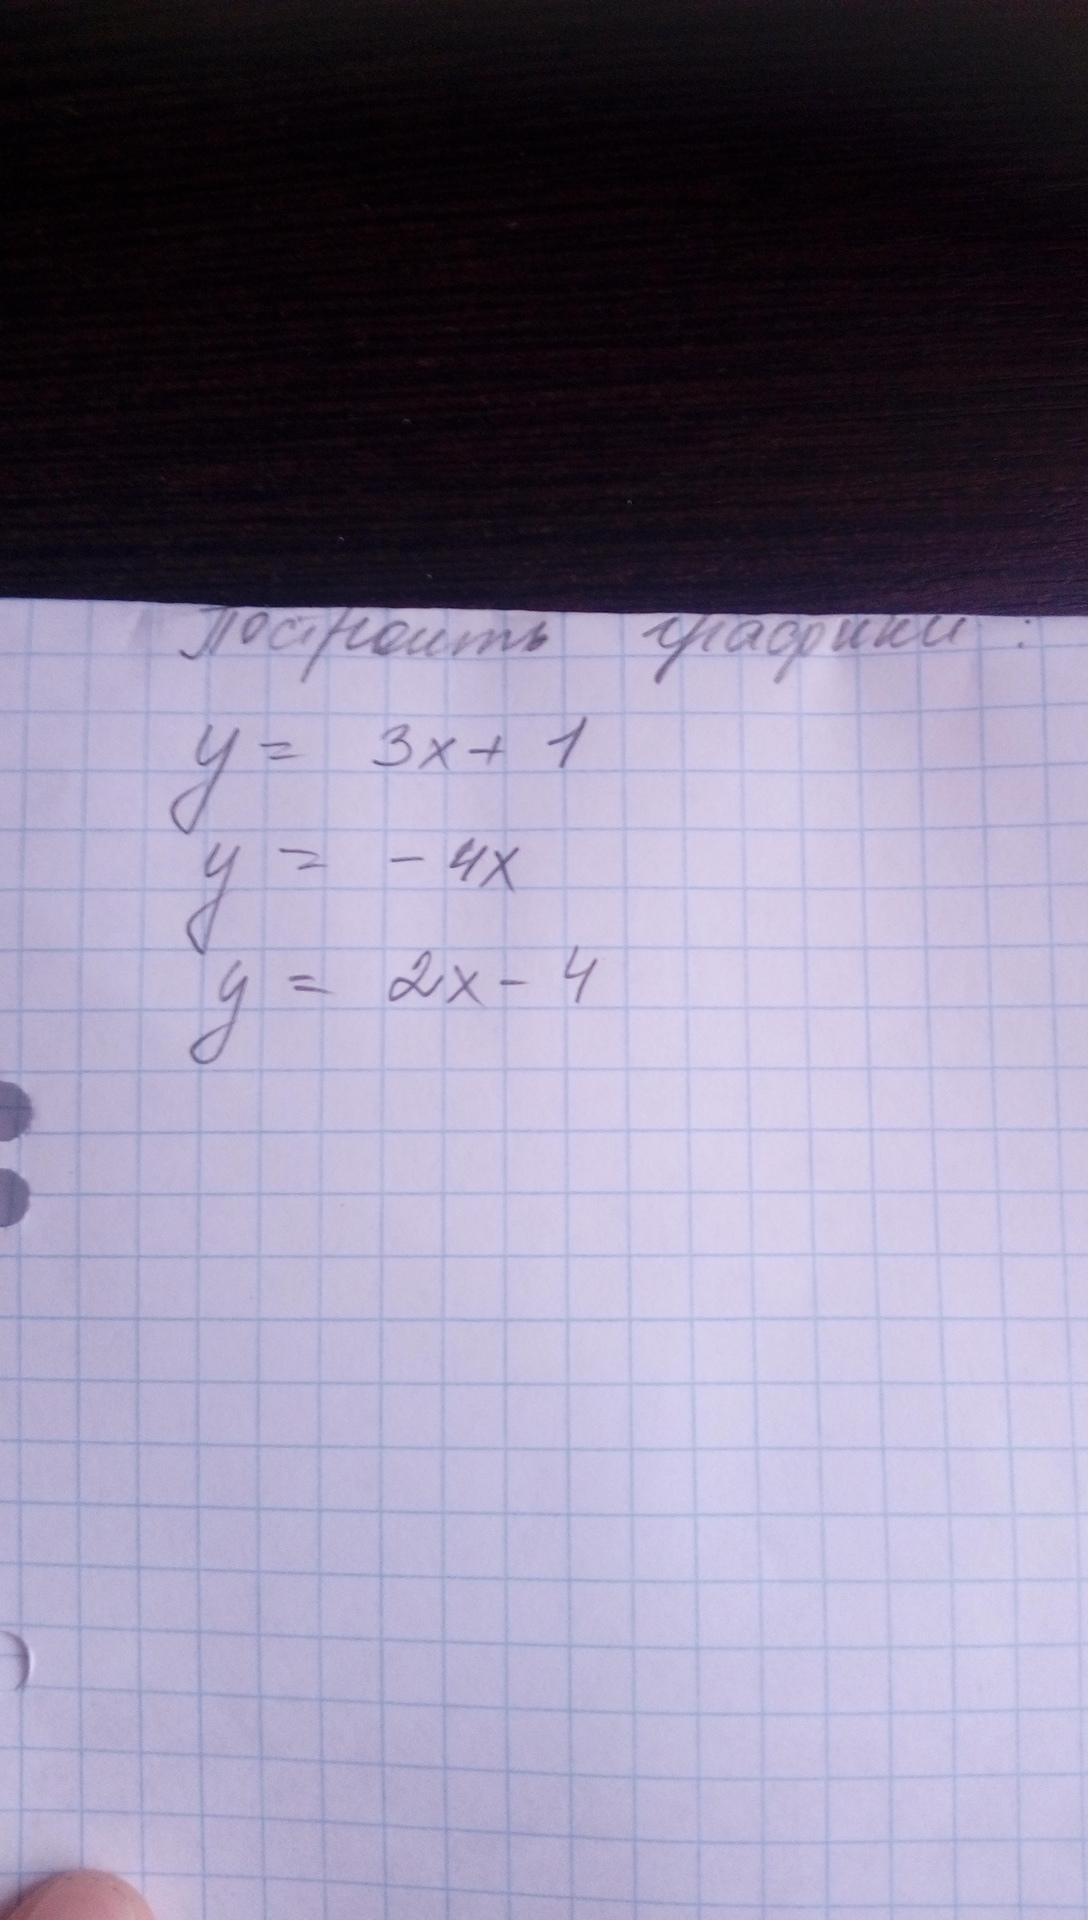 Построить графики:
y = 3x + 1
y = - 4x
y = 2x - 4